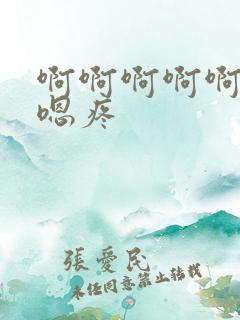 啊啊啊啊啊
嗯疼
張愛民
未经同意禁止转载